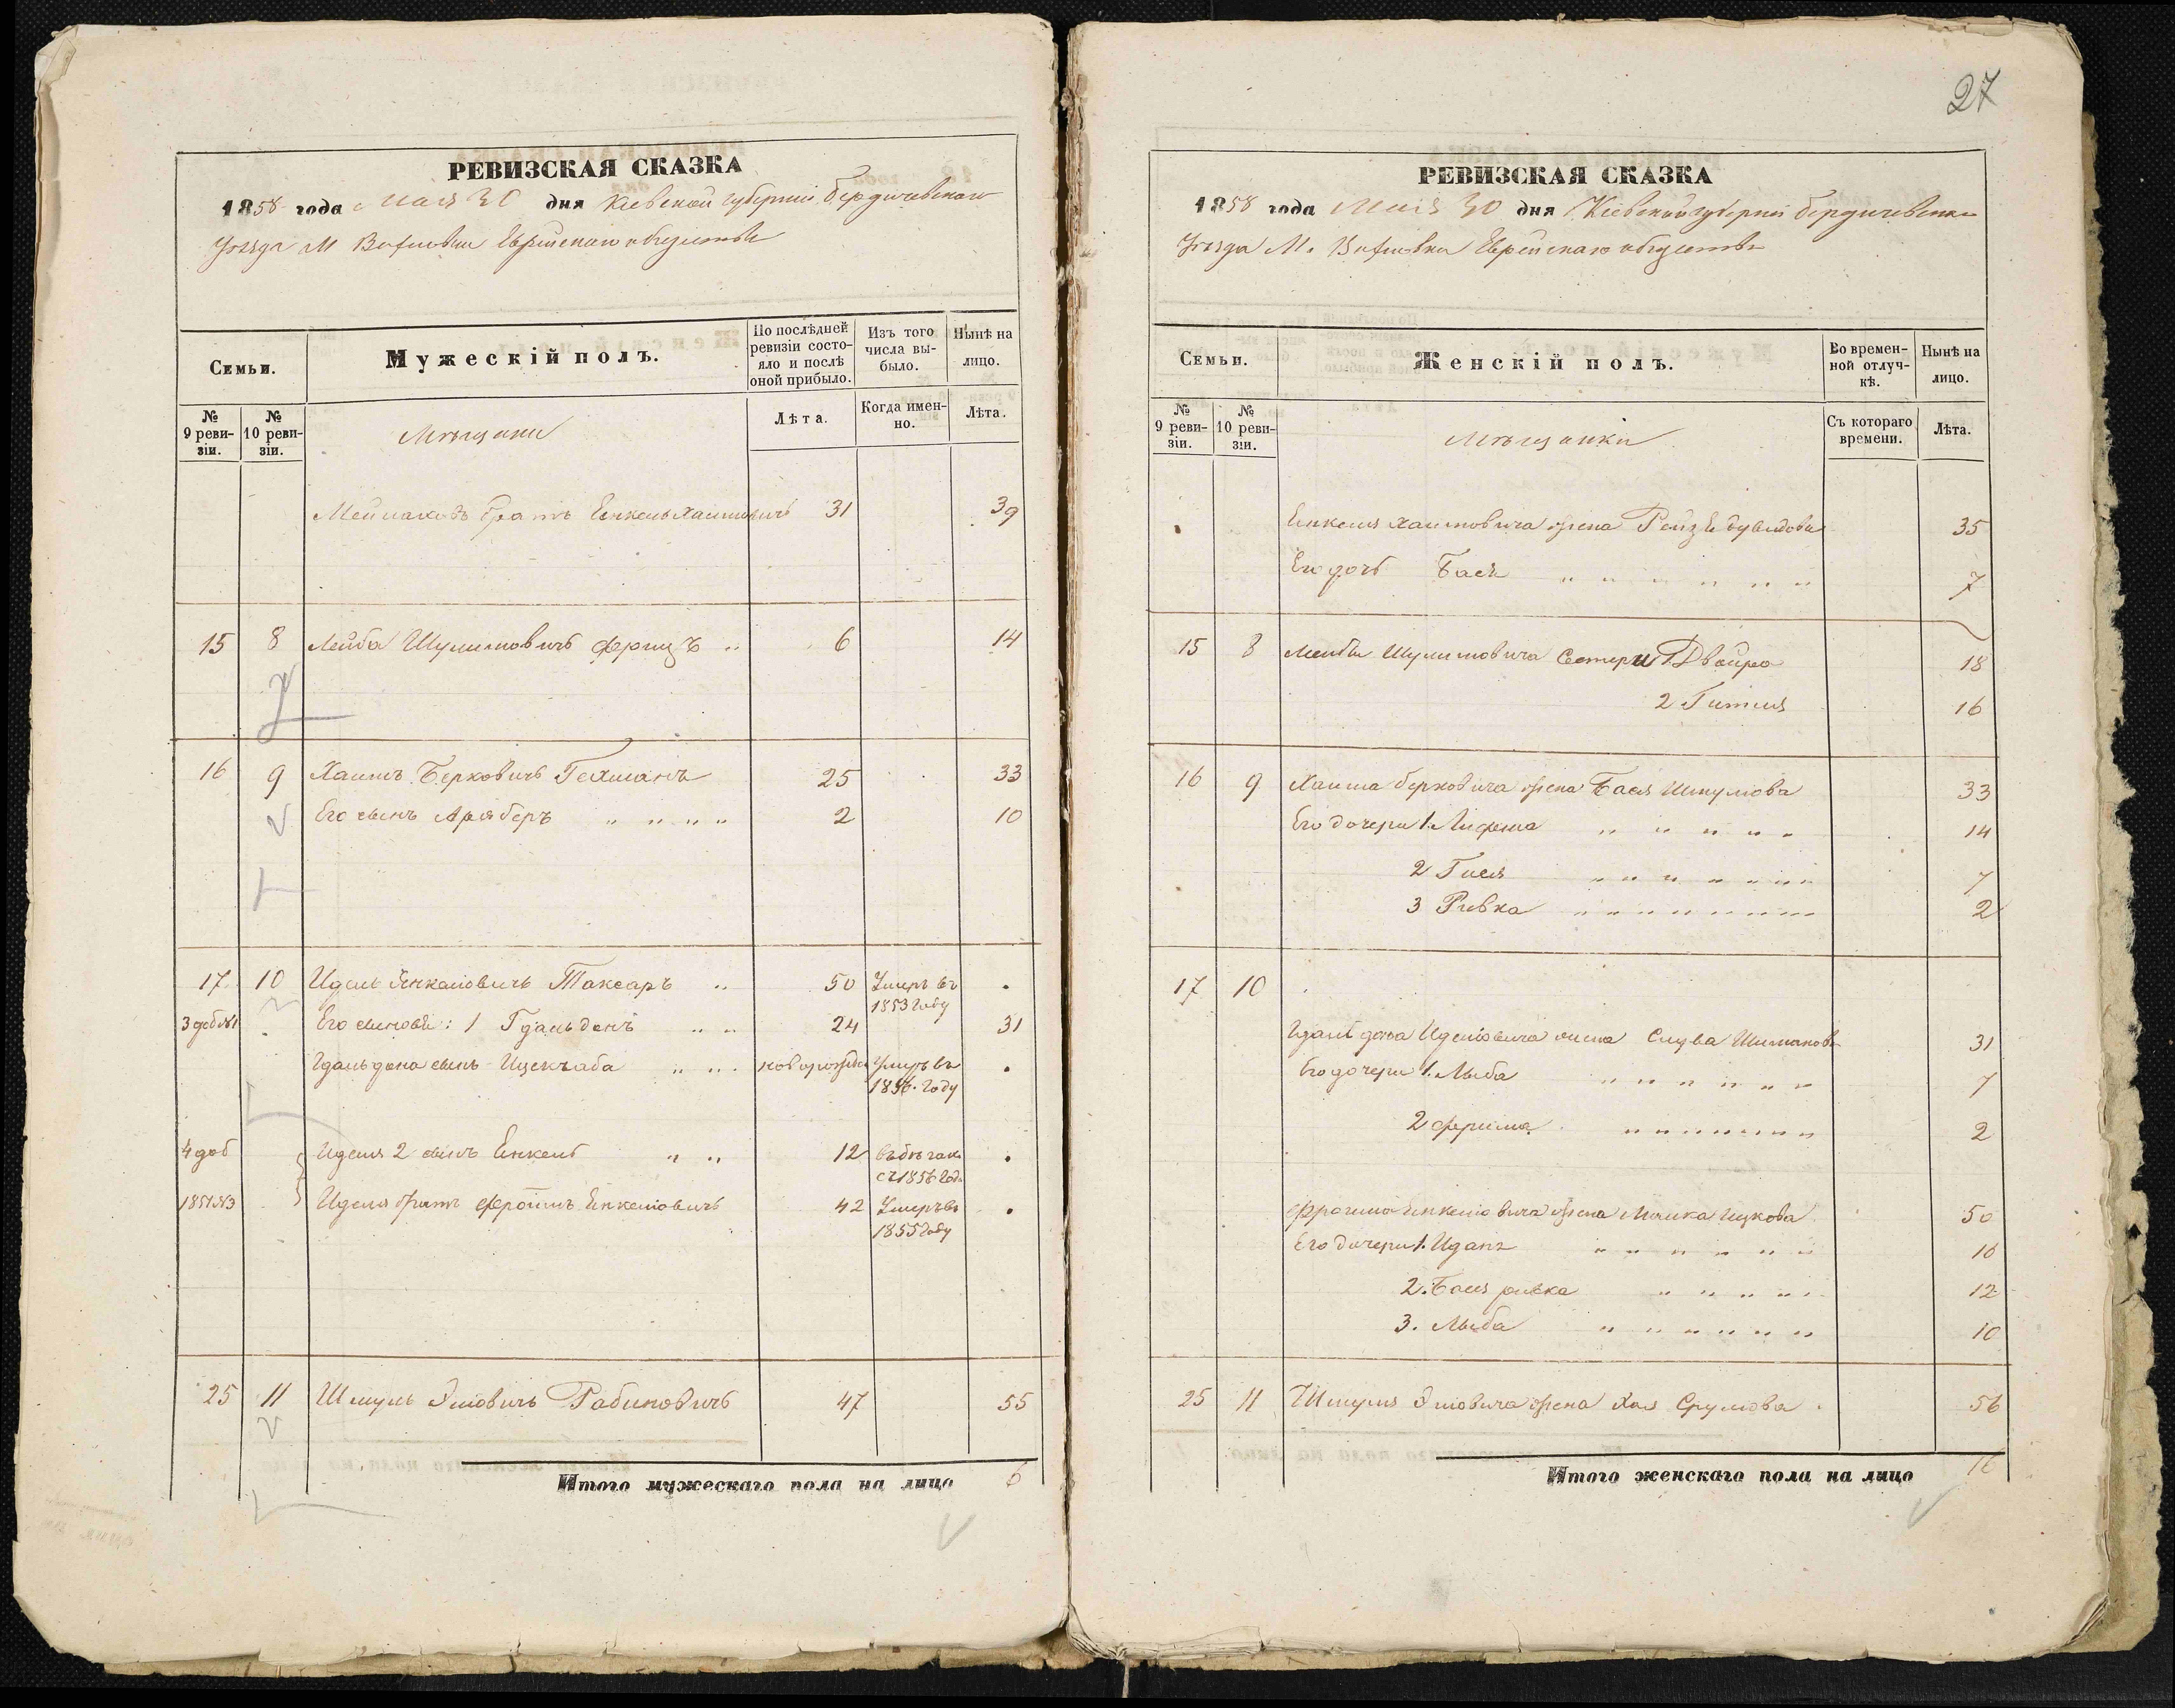 РЕВИЗСКАЯ СКАЗКА
1858 года Мая 30 дня Кіевской губерніи Бердичевскаго
Уѣзда М Еврейскаго общества
Семьи.
Мужескій полъ.
По послѣдней ревизіи состояло и послѣ оной прибыло.
Изъ того числа выбыло.
Нынѣ на лицо.
№ 9 ревизіи.
№ 10 ревизіи.
Мѣщани
Лѣта.
Когда именно.
Лѣта.
братъ Енкель Хаимовичъ 31 39
15 8 Лейба Шулимовичъ 6 14
16 9 Хаимъ Берковичъ Гехманъ 25 33
Его сынъ Арябёръ " " " " 2 10
17 10 Идель Янкелювичъ Таксаръ " 50 Умеръ въ .
1853 году
Его сыновья: 1 Гдальденъ " " 24 31
Гдальдена сынъ " " новорожд Умеръ въ .
1856. году
4 доб Иделя 2 сынъ Енкель " " 12 въ бѣгахъ .
съ 1856 года
1851 №3 Иделя братъ Фроимъ Енкелювичъ 42 Умеръ въ .
1855 году
25 11 Шмуль Эльовичъ Рабиновичъ 47 55
Итого мужескаго пола на лицо 6
27
РЕВИЗСКАЯ СКАЗКА
1858 года Мая 30 дня Кіевской губерніи Бердичевска
Уѣзда М. Еврейскаго общества
Семьи.
Женскій полъ.
Во временной отлучкѣ.
Нынѣ на лицо.
№ 9 ревизіи.
№ 10 ревизіи.
Мѣщанки
Съ котораго времени.
Лѣта.
Енкеля Хаимовича жена Рейзя Дувидова 35
Его дочь Бася " " " " " " " 7
15 8 Лейбы Шулимовича Сестры 1 Двойра 18
2 Гитля 16
16 9 Хаима Берковича жена Бася Шмулова 33
Его дочери 1. " " " " " 14
2 Гися " " " " " " " 7
3 Ривка " " " " " " " " " 2
17 10
Гдальдона Иделовича жена Слува Шиманова 31
Его дочери 1. Лыба " " " " " " " 7
2 Фрима " " " " " " " " 2
Фроима Енкелювича жена Малка Ицкова 50
Его дочери 1. " " " " " " 16
2. Бася ривка " " " " " 12
3. Лыба " " " " " " 10
25 11 Шмуля Эльовича жена Хая Срулова . 56
Итого женскаго пола на лицо 16